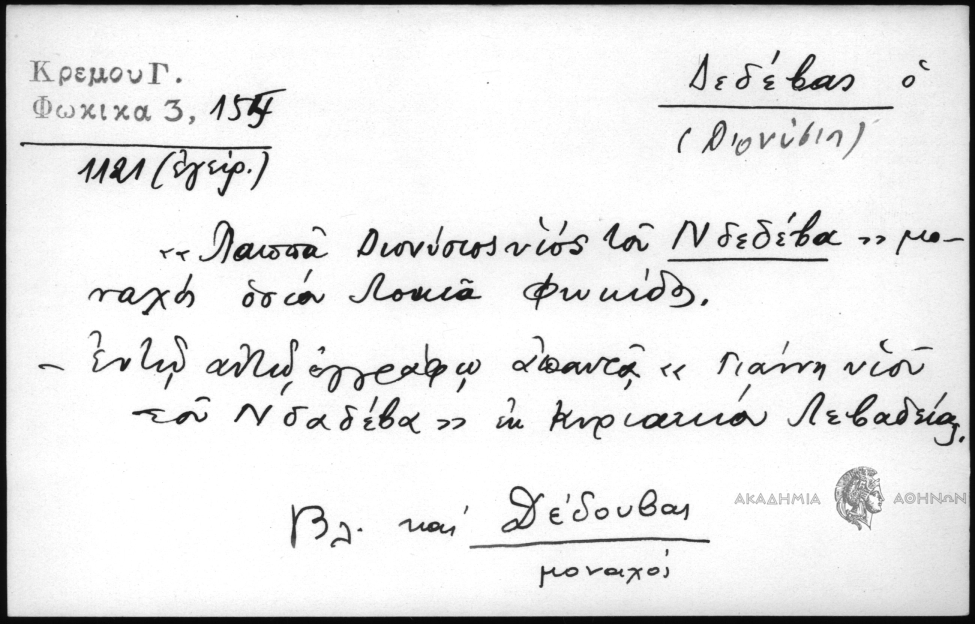 Κρεμου Γ.
Φωκικα 3, 15
1121 (ἐγειρ.)
Δεδέβας ὁ
(Διονύσιη)
«Παππᾶ Διονύσιος υἱός τοῦ Νδεδέβα» μο-
ναχός ὁσίου Λουκᾶ Φωκίδος.
- Ἐν τῷ αὐτῷ ἐγγράφῳ ἀπαντᾷ «Γιάννη υἱοῦ
τοῦ Νδαδέβα» ἐκ Κυριακίου Λεβαδείας.
Βλ. καί Δέδουβας
μοναχοί
ΑΚΑΔΗΜΙΑ ΑΘΗΝΩΝ